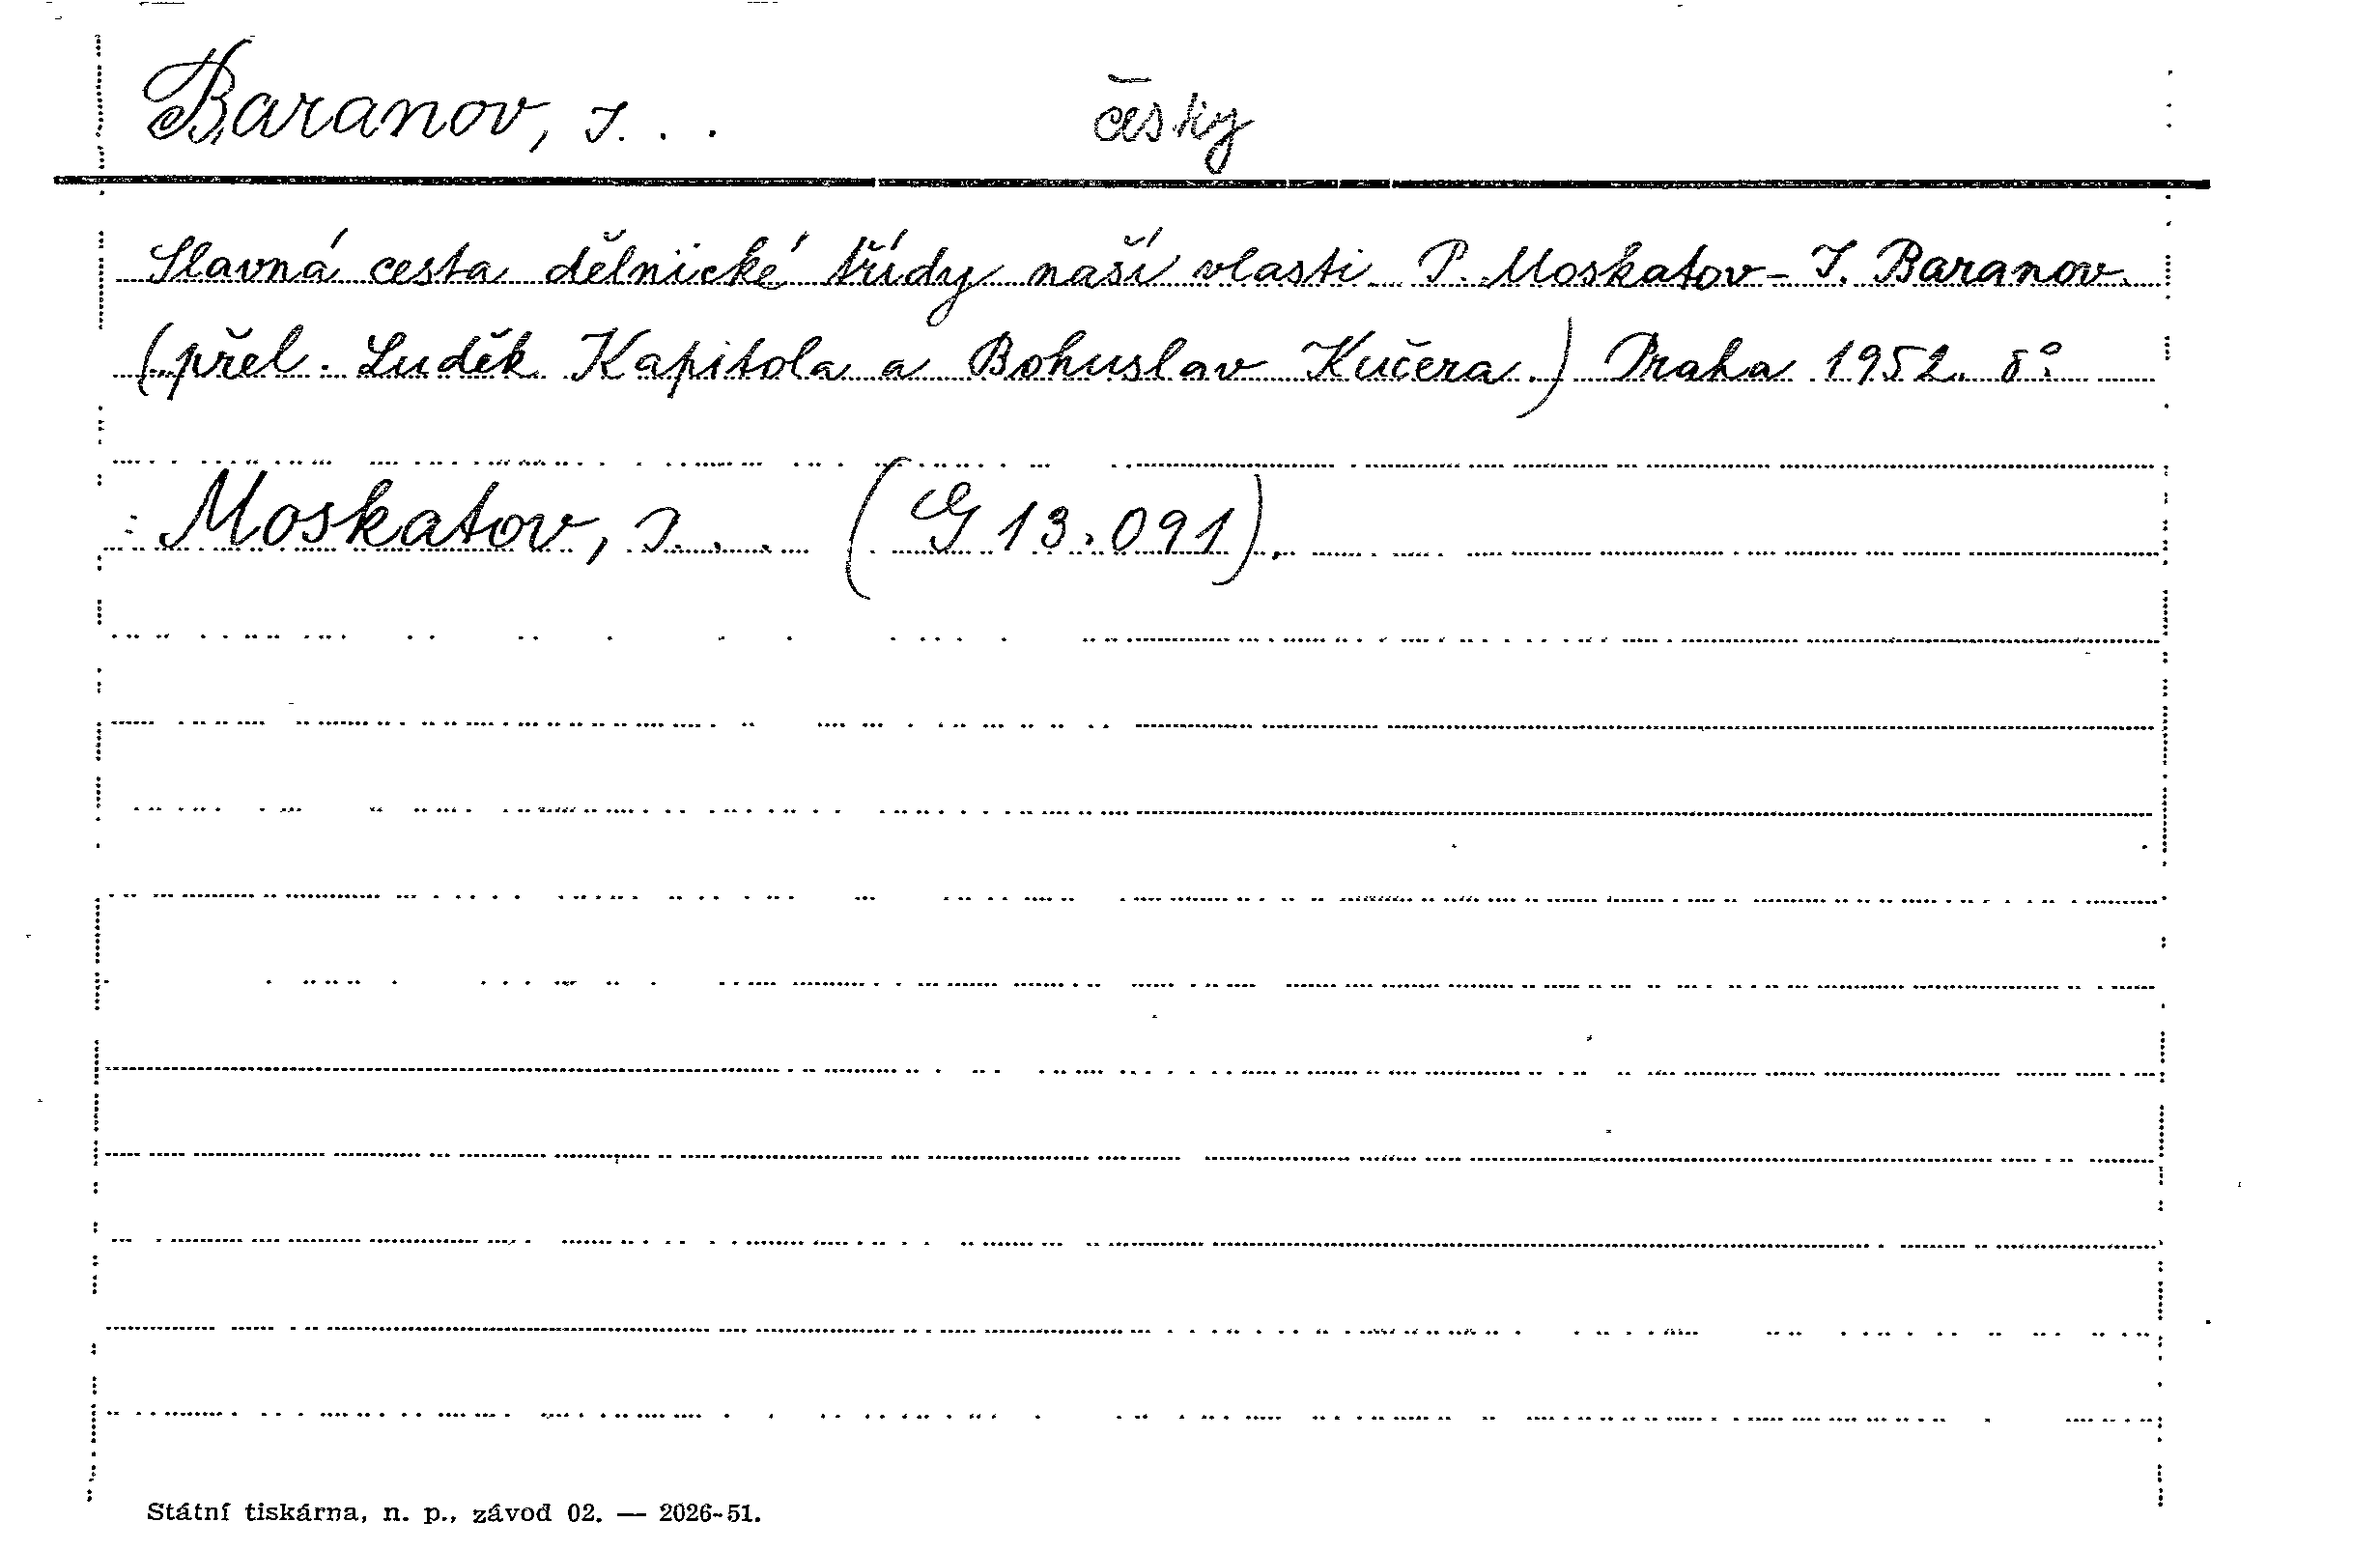 Baranov, I. . . česky
Slavná cesta dělnické třídy naší vlasti P. Moskatov - I. Baranov.
(přel. Luděk Kapitola a Bohuslav Kučera.) Praha 1952. 8°.
: Moskatov, I. . . (G 13.091).
Státní tiskárna, n. p., závod 02. — 2026-51.